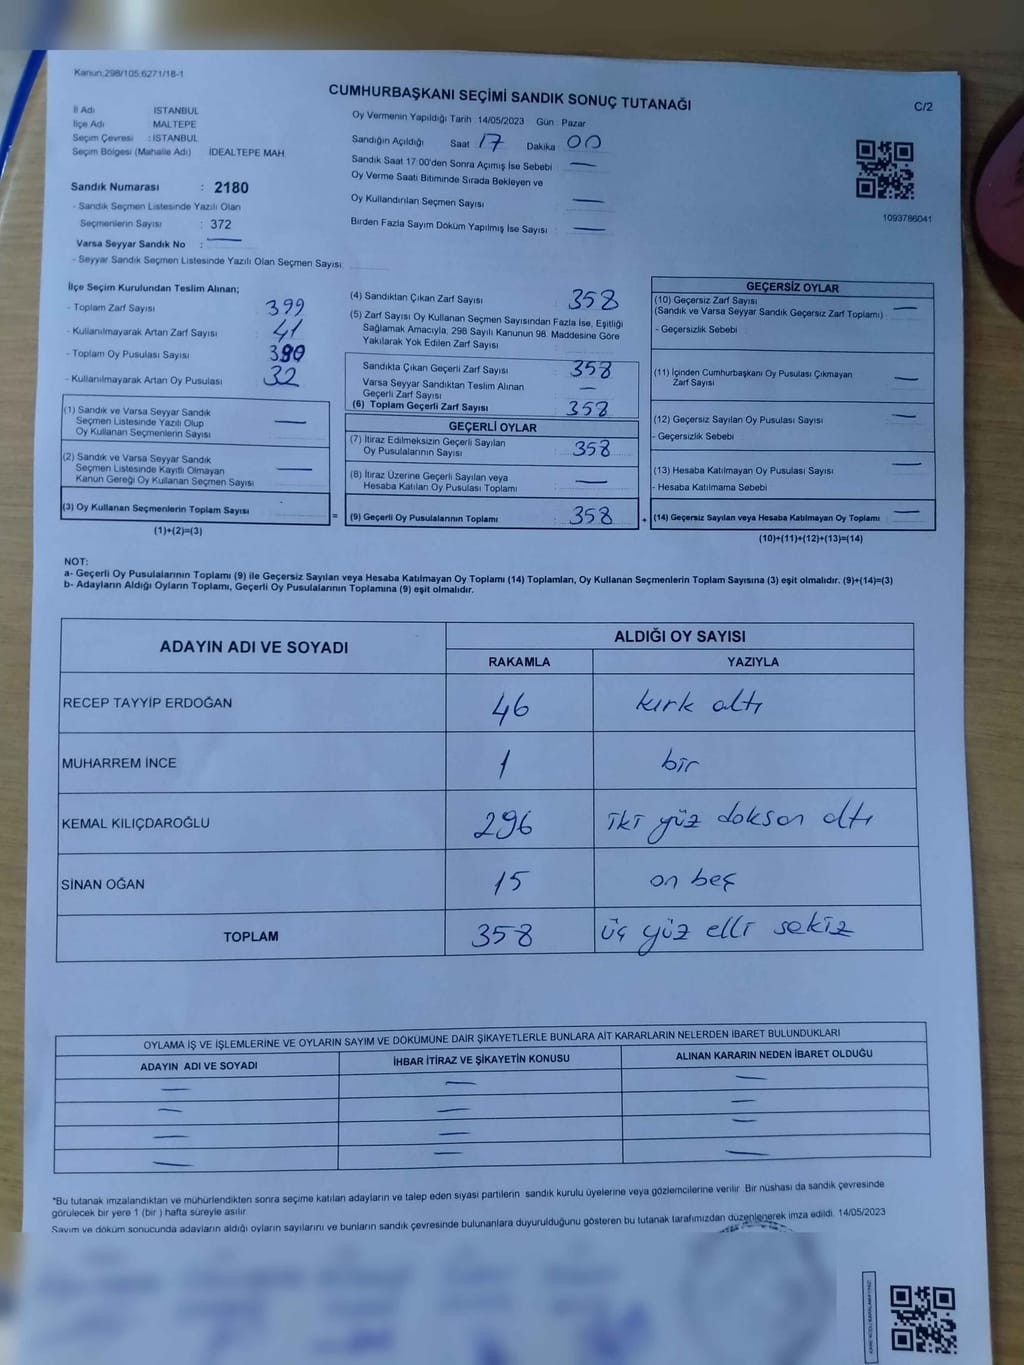 Kanun:298/105.6271/18-1
CUMHURBAŞKANI SEÇİMİ SANDIK SONUÇ TUTANAĞI
C/2
İl Adı İSTANBUL
İlçe Adı MALTEPE
Seçim Çevresi : İSTANBUL
Seçim Bölgesi (Mahalle Adı) İDEALTEPE MAH.
Oy Vermenin Yapıldığı Tarih 14/05/2023 Gün Pazar
Sandığın Açıldığı Saat 17 Dakika 00
Sandık Saat 17:00'den Sonra Açımış İse Sebebi —
Oy Verme Saati Bitiminde Sırada Bekleyen ve
Oy Kullandırılan Seçmen Sayısı —
Birden Fazla Sayım Döküm Yapılmış İse Sayısı : —
1093786041
Sandık Numarası : 2180
- Sandık Seçmen Listesinde Yazılı Olan
Seçmenlerin Sayısı : 372
Varsa Seyyar Sandık No : —
- Seyyar Sandık Seçmen Listesinde Yazılı Olan Seçmen Sayısı:
İlçe Seçim Kurulundan Teslim Alınan;
- Toplam Zarf Sayısı 399
- Kullanılmayarak Artan Zarf Sayısı : 41
- Toplam Oy Pusulası Sayısı 390
- Kullanılmayarak Artan Oy Pusulası 32
(1) Sandık ve Varsa Seyyar Sandık
Seçmen Listesinde Yazılı Olup
Oy Kullanan Seçmenlerin Sayısı —
(2) Sandık ve Varsa Seyyar Sandık
Seçmen Listesinde Kayıtlı Olmayan
Kanun Gereği Oy Kullanan Seçmen Sayısı —
(3) Oy Kullanan Seçmenlerin Toplam Sayısı
(1)+(2)=(3)
=
(4) Sandıktan Çıkan Zarf Sayısı : 358
(5) Zarf Sayısı Oy Kullanan Seçmen Sayısından Fazla İse, Eşitliği
Sağlamak Amacıyla, 298 Sayılı Kanunun 98. Maddesine Göre
Yakılarak Yok Edilen Zarf Sayısı
Sandıkta Çıkan Geçerli Zarf Sayısı : 358
Varsa Seyyar Sandıktan Teslim Alınan
Geçerli Zarf Sayısı —
(6) Toplam Geçerli Zarf Sayısı : 358
GEÇERLİ OYLAR
(7) İtiraz Edilmeksizin Geçerli Sayılan
Oy Pusulalarının Sayısı : 358
(8) İtiraz Üzerine Geçerli Sayılan veya
Hesaba Katılan Oy Pusulası Toplamı —
(9) Geçerli Oy Pusulalarının Toplamı : 358
+
GEÇERSİZ OYLAR
(10) Geçersiz Zarf Sayısı
(Sandık ve Varsa Seyyar Sandık Geçersiz Zarf Toplamı) —
- Geçersizlik Sebebi
(11) İçinden Cumhurbaşkanı Oy Pusulası Çıkmayan
Zarf Sayısı —
(12) Geçersiz Sayılan Oy Pusulası Sayısı —
- Geçersizlik Sebebi
(13) Hesaba Katılmayan Oy Pusulası Sayısı —
- Hesaba Katılmama Sebebi
(14) Geçersiz Sayılan veya Hesaba Katılmayan Oy Toplamı —
(10)+(11)+(12)+(13)=(14)
NOT:
a- Geçerli Oy Pusulalarının Toplamı (9) ile Geçersiz Sayılan veya Hesaba Katılmayan Oy Toplamı (14) Toplamları, Oy Kullanan Seçmenlerin Toplam Sayısına (3) eşit olmalıdır. (9)+(14)=(3)
b- Adayların Aldığı Oyların Toplamı, Geçerli Oy Pusulalarının Toplamına (9) eşit olmalıdır.
ADAYIN ADI VE SOYADI
ALDIĞI OY SAYISI
RAKAMLA YAZIYLA
RECEP TAYYİP ERDOĞAN 46 kırk altı
MUHARREM İNCE 1 bir
KEMAL KILIÇDAROĞLU 296 iki yüz doksan altı
SİNAN OĞAN 15 on beş
TOPLAM 358 üç yüz elli sekiz
OYLAMA İŞ VE İŞLEMLERİNE VE OYLARIN SAYIM VE DÖKÜMÜNE DAİR ŞİKAYETLERLE BUNLARA AİT KARARLARIN NELERDEN İBARET BULUNDUKLARI
ADAYIN ADI VE SOYADI İHBAR İTİRAZ VE ŞİKAYETİN KONUSU ALINAN KARARIN NEDEN İBARET OLDUĞU
— — —
— — —
— — —
— — —
*Bu tutanak imzalandıktan ve mühürlendikten sonra seçime katılan adayların ve talep eden siyasi partilerin sandık kurulu üyelerine veya gözlemcilerine verilir. Bir nüshası da sandık çevresinde
görülecek bir yere 1 (bir ) hafta süreyle asılır.
Sayım ve döküm sonucunda adayların aldığı oyların sayılarını ve bunların sandık çevresinde bulunanlara duyurulduğunu gösteren bu tutanak tarafımızdan düzenlenerek imza edildi. 14/05/2023